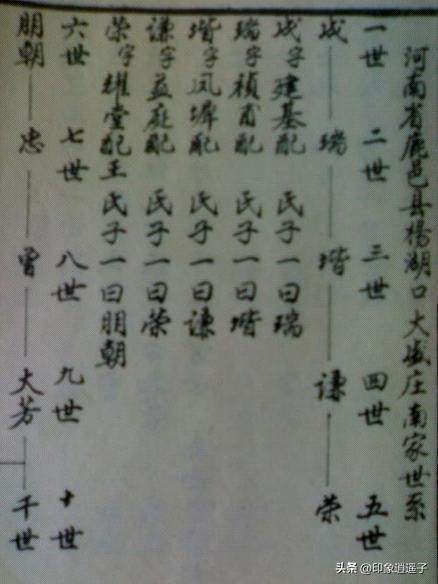 河南省鹿邑县楊湖口大盛庄南家世系
一世 二世 三世 四世 五世
成 瑞 堦 谦 荣
成字建基配 氏子一曰瑞
瑞字祯甫配 氏子一曰堦
堦字凤墀配 氏子一曰谦
谦字益庭配 氏子一曰荣
荣字耀堂配王氏子一曰朋朝
六世 七世 八世 九世 十世
朋朝 忠 曾 大芳 千世
头条 @印象逍遥子